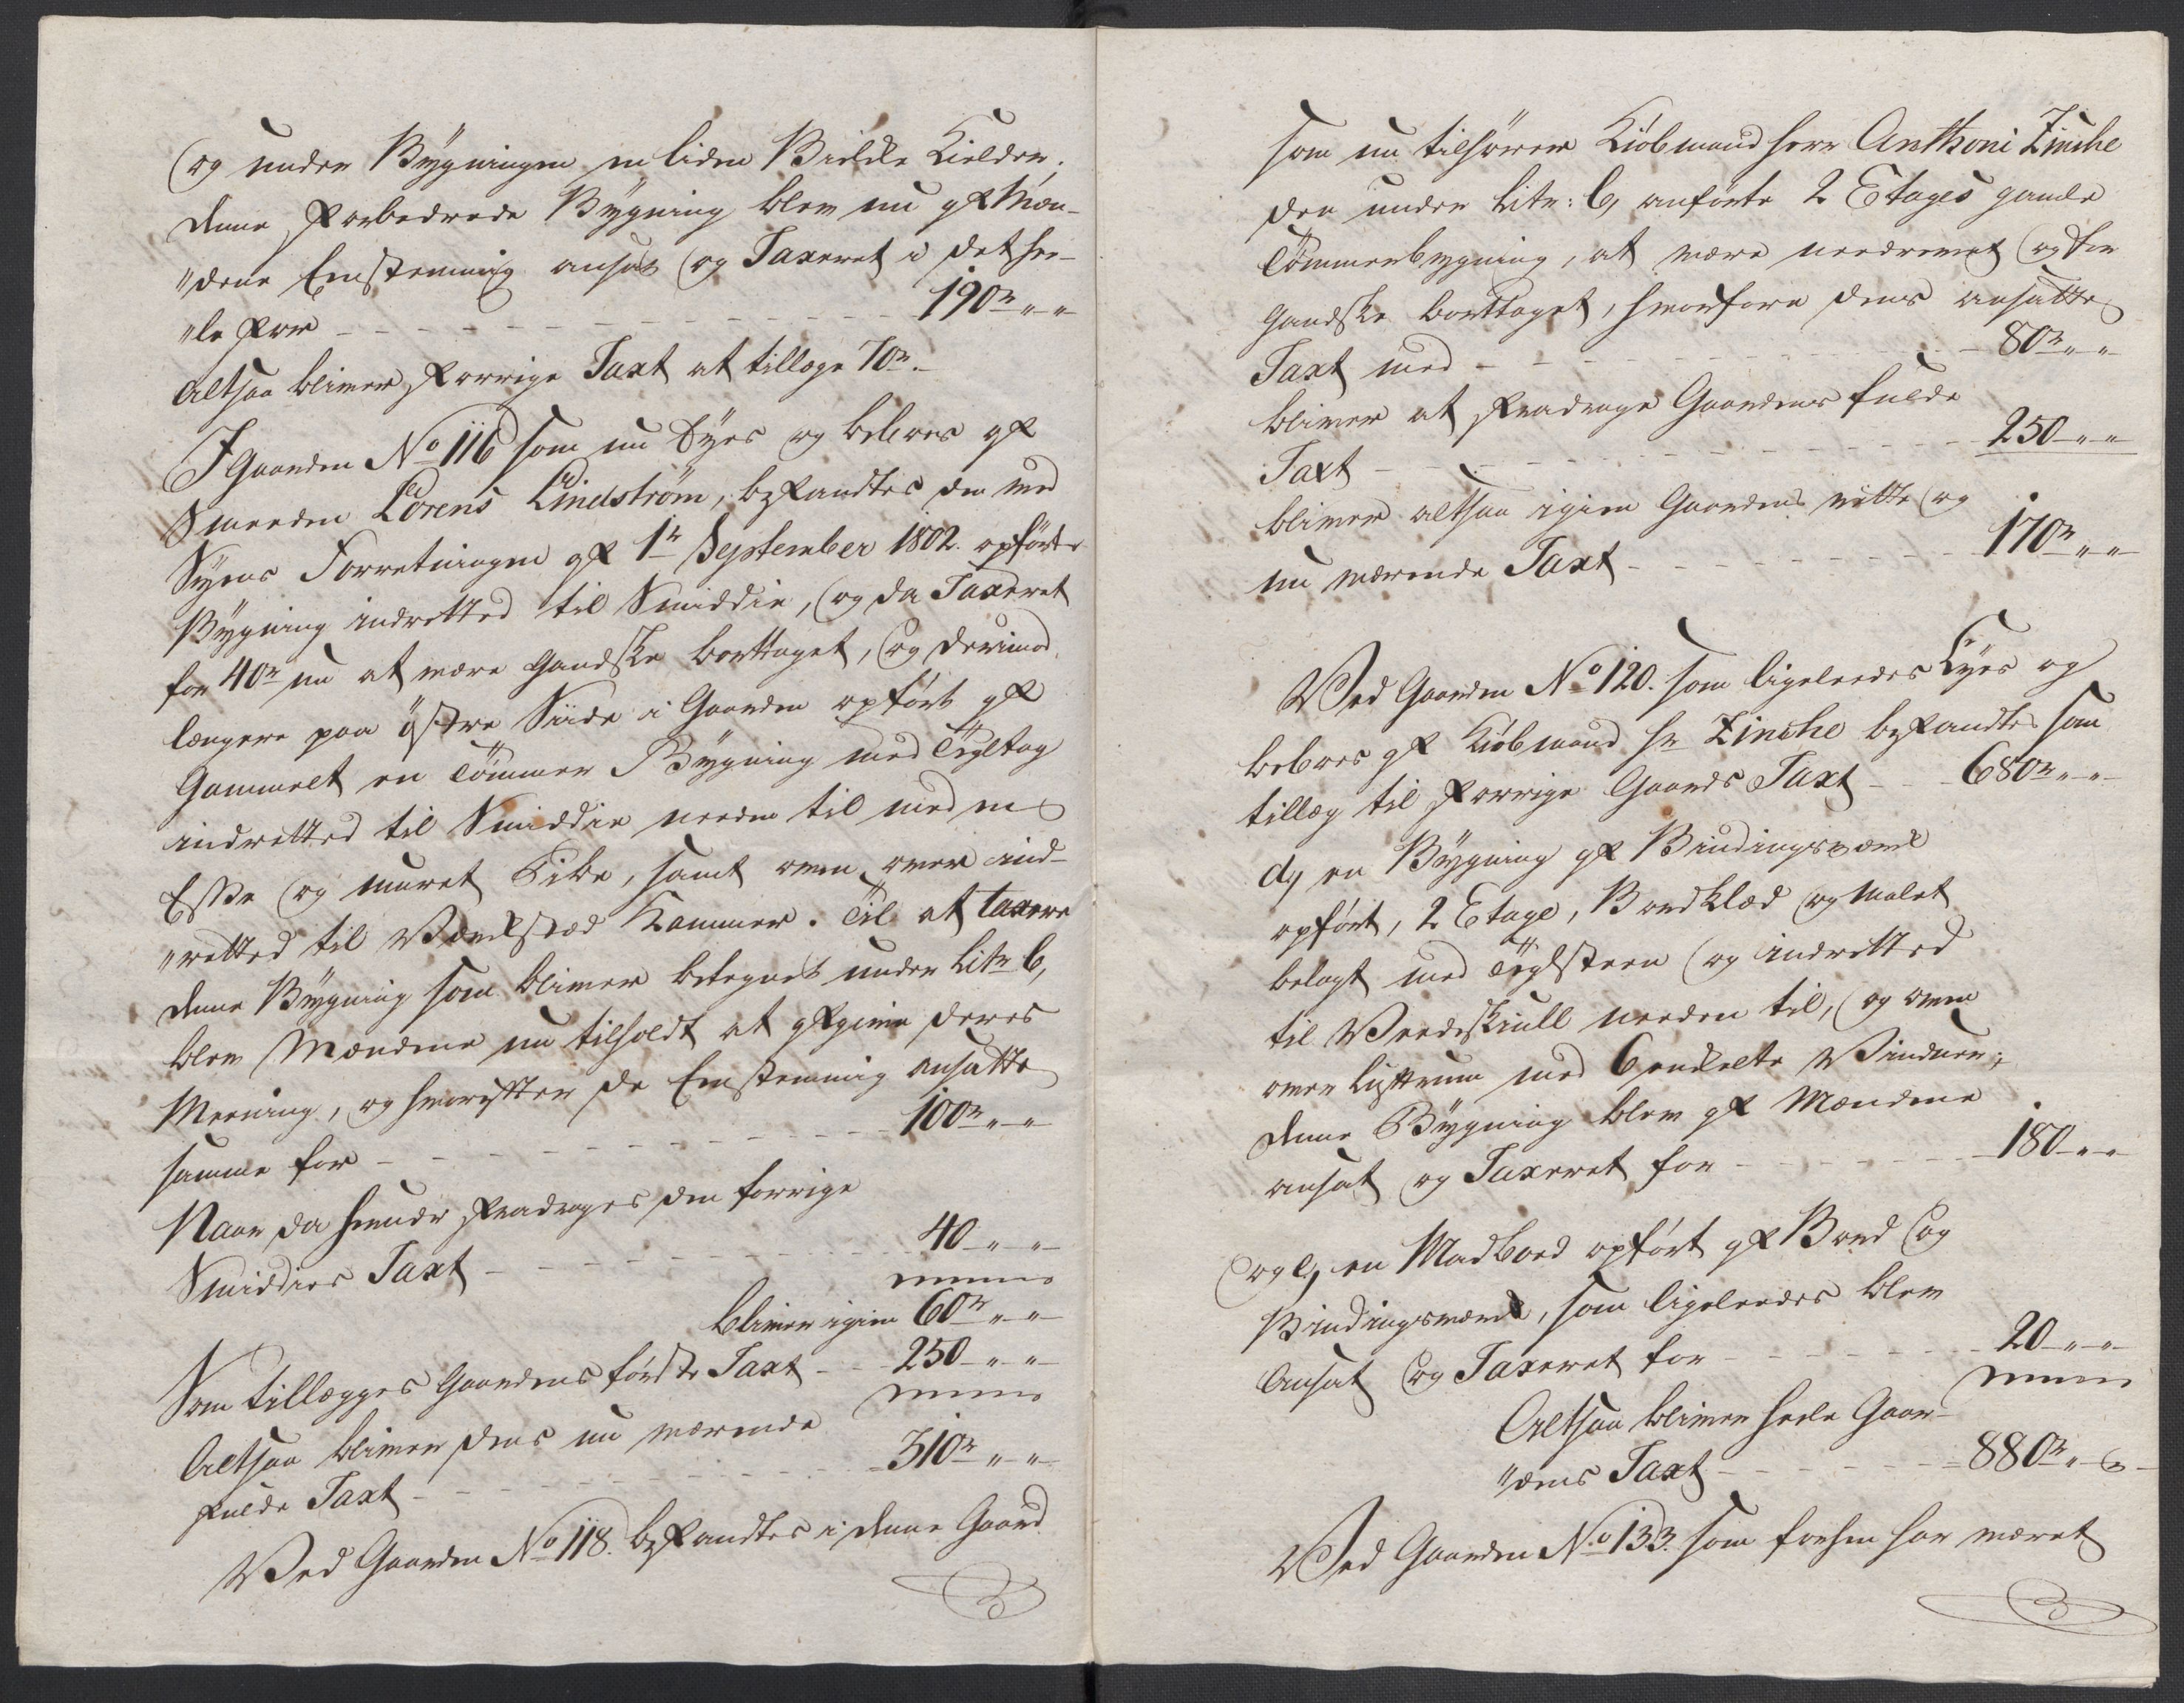 og under Bygningen en liden Bielke Kielder,
denne forbedrede Bygning blev nu af Mæn-
"dene Eenstemmig ansat og Taxeret i det hee-
"le for - - - 190rd " "
Altsaa bliver forrige Taxt at tillæge 70rd.
I Gaarden No 116 som nu Eyes og beboes af
Smeeden Lorens Lindstrøm, befandtes den ved
Syens Forretningen af 1te September 1802. opførte
Bygning indretted til Smiddie, og da Taxeret
for 40rd nu at være gandske borttaget, og derimod
længere paa østre Siide i Gaarden opført af
Gammelt en Tømmer Bygning med Tegltag
indretted til Smiddie needen til med en
Esse og muret Pibe, samt oven over ind-
"retted til Værksted Kammer. Til at taxere
denne Bygning som bliver betegnet under Litr b,
blev Mændene nu tilholdt at afgive deres
Meening, og hvorefter de Eenstemmig ansatte
samme for - - - 100rd " "
Naar da herudi fradrages den forrige
Smiddies Taxt - - - 40 " "
bliver igien 60rd " "
Som tillægges Gaardens første Taxt - 250 " "
Altsaa bliver dens nu værende
fulde Taxt - - - 310rd " "
Ved Gaarden No 118. befandtes i denne Gaard
som nu tilhører Kiøbmand Herr Anthoni Zinche
den under Litr: b, anførte 2 Etages gamle
Tømmerbygning, at være needrevet og
gandske borttaget, hvorfore dens ansatte
Taxt med - - - 80rd " "
bliver at fradrage Gaardens fulde
Taxt - - - 250 " "
bliver altsaa igien Gaardens rette og
nu værende Taxt - - - 170rd " "
Ved Gaarden No 120. som ligeleedes Eyes og
beboes af Kiøbmand Hr Zinche befandtes som
tillæg til forrige Gaards Taxt - 680rd " "
d, en Bygning af Bindingsværk
opført, 2 Etage, Bordklæd og Malet
belagt med Teglsteen og indretted
til Veedeskiull needen til, og oven
over Lystrum med 6 enkelte Vinduer;
denne Bygning blev af Mændene
ansat og Taxeret for - - - 180 " "
og e, en Madboed opført af Bord og
Bindingsværk, som ligeleedes blev
Ansat og Taxeret for - - - 20 " "
Altsaa bliver heele Gaar-
"dens Taxt - - - 880rd " "
Ved Gaarden No 133. som forhen har været